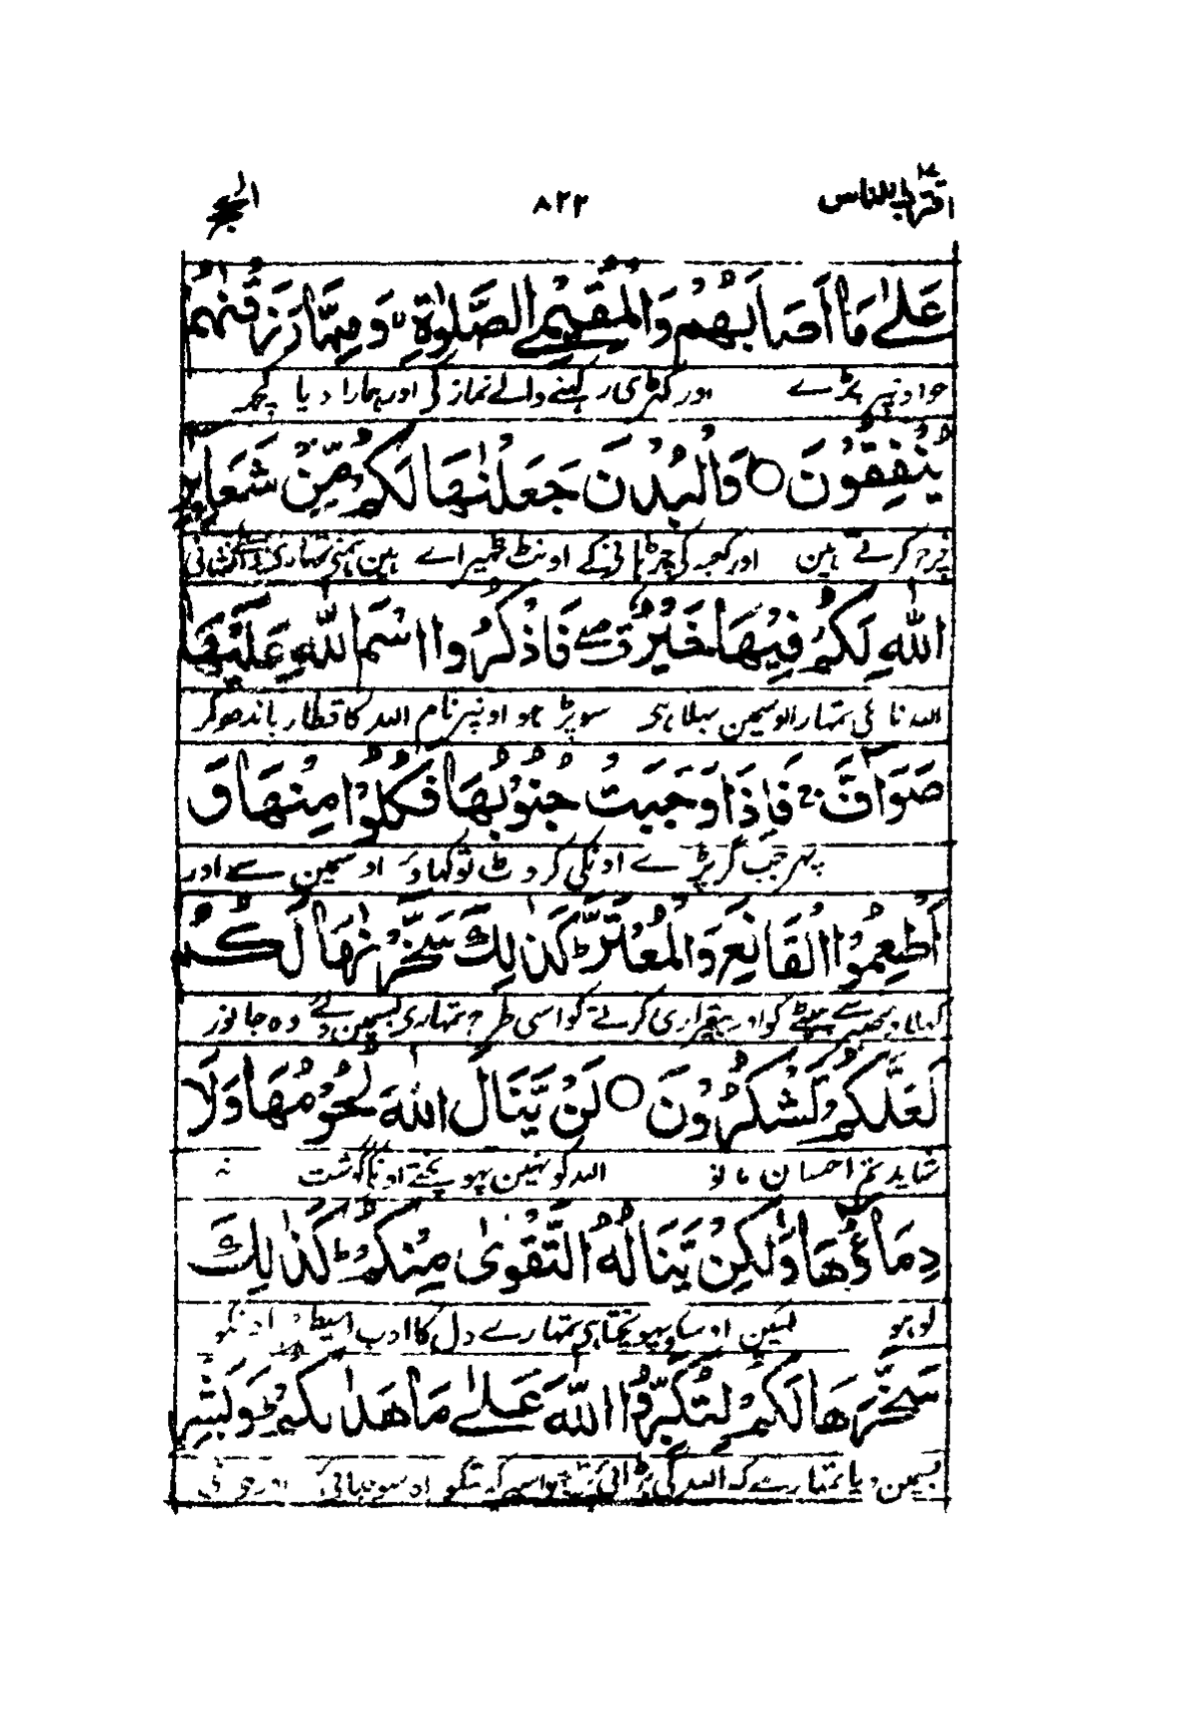 اقترب للناس ١٧ ٨٢٢ الحج
عَلٰى مَاۤ اَصَابَهُمْ وَالْمُقِيْمِي الصَّلٰوةِ ۙ وَمِمَّا رَزَقْنٰهُمْ
جو اونپر پڑے اور کھڑی رکہنے والے نماز کی اور ہمارا دیا کچھہ
يُنْفِقُوْنَ ○ وَالْبُدْنَ جَعَلْنٰهَا لَكُمْ مِّنْ شَعَآئِرِ
خرچ کرتے ہین اور کعبہ کی چڑہانیکے اونٹ ٹھہیراے ہین ہمنی تمہاری نشانی
اللّٰهِ لَكُمْ فِيْهَا خَيْرٌ ۖ فَاذْكُرُوا اسْمَ اللّٰهِ عَلَيْهَا
اللہ نام کی تمہارا اوسمین بہلا ہی سو پڑہو اونپر نام اللہ کا قطار باندھکر
صَوَآفَّ ۚ فَاِذَا وَجَبَتْ جُنُوْبُهَا فَكُلُوْا مِنْهَا وَ
پہر جب گر پڑے اونکی کروٹ تو کہاؤ اوسمین سے اور
اَطْعِمُوا الْقَانِعَ وَالْمُعْتَرَّ ؕ كَذٰلِكَ سَخَّرْنٰهَا لَكُمْ
کہلاؤ صبر سے بیٹھے کو اور بیقراری کرتے کو اسی طرح تمہاری بسمین دئے وہ جانور
لَعَلَّكُمْ تَشْكُرُوْنَ ○ لَنْ يَّنَالَ اللّٰهَ لُحُوْمُهَا وَلَا
شاید تم احسان مانو اللہ کو نہین پہونچتے اونکا گوشت نہ
دِمَآؤُهَا وَلٰكِنْ يَّنَالُهُ التَّقْوٰى مِنْكُمْ ؕ كَذٰلِكَ
لوہو لیکن اوسکو پہونچتا ہی تمہارے دل کا ادب اسیطرح اونکو
سَخَّرَهَا لَكُمْ لِتُكَبِّرُوا اللّٰهَ عَلٰى مَا هَدٰىكُمْ ؕ وَبَشِّرِ
بسمین دیا تمہارے کہ اللہ کی بڑائی پڑہو اسپر کہ تمکو راہ سوجہائی اور خوشی